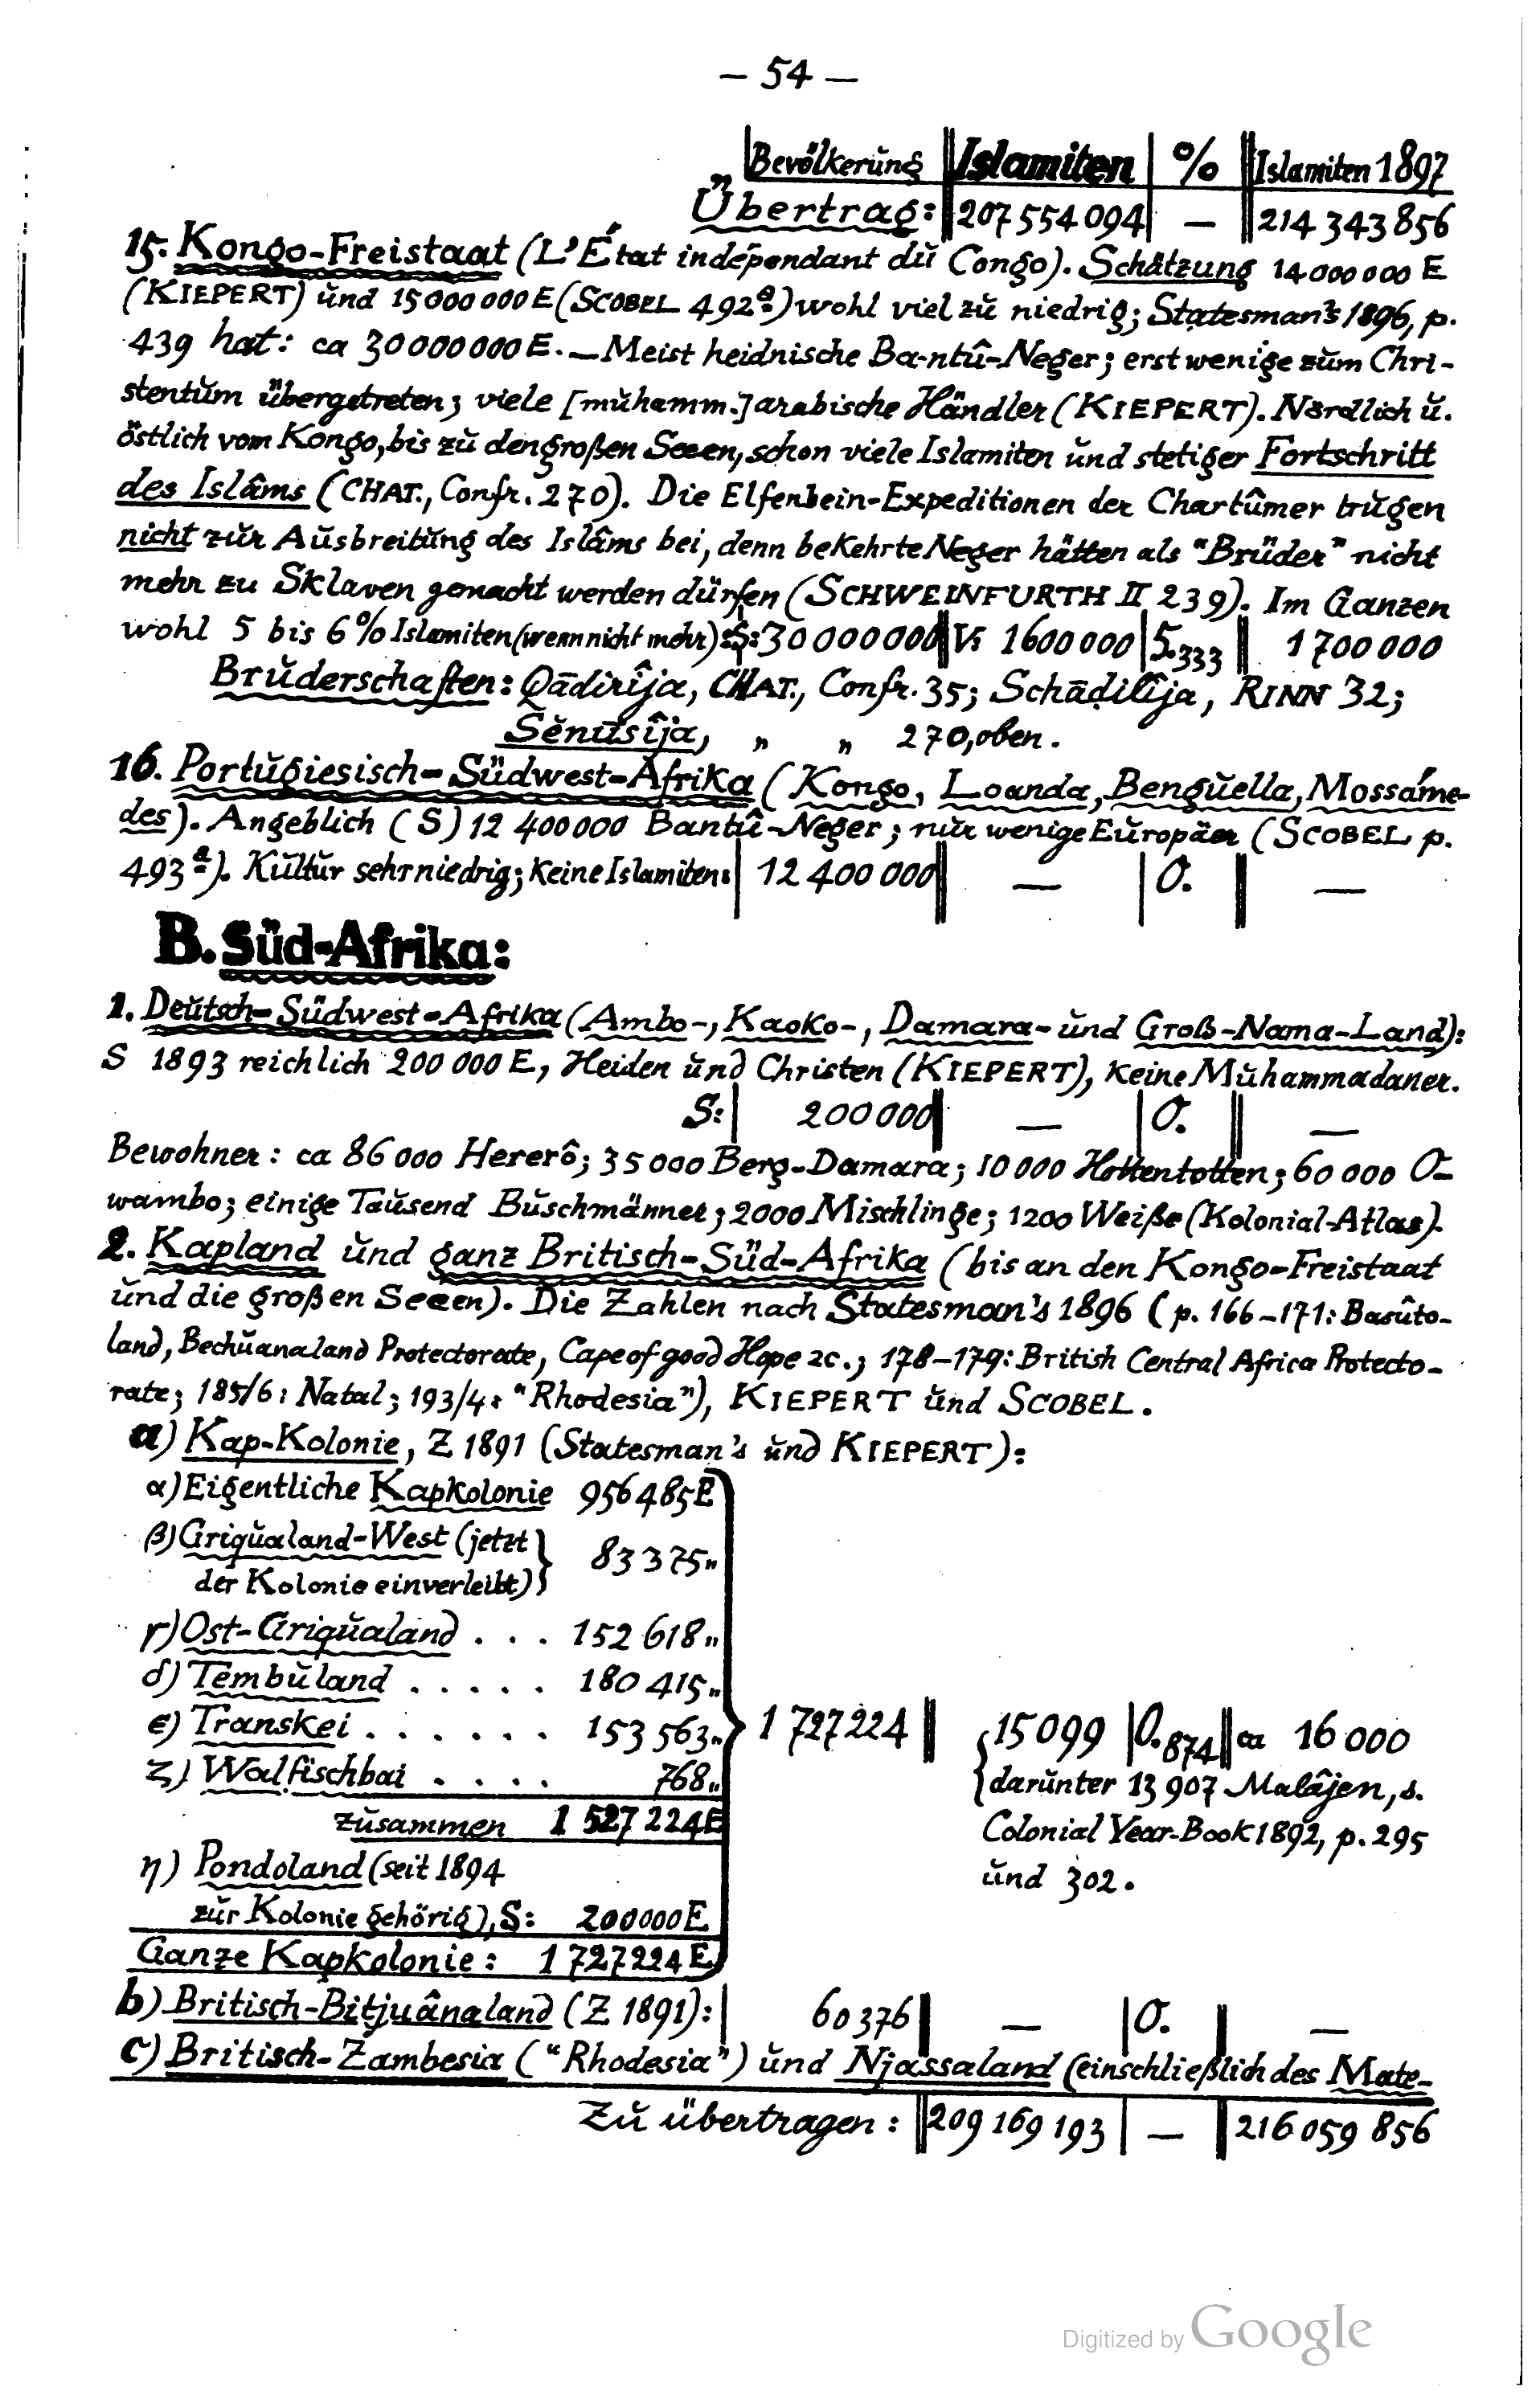 — 54 —
Bevölkerung Islamiten % Islamiten 1897
Übertrag: 207 554 094 — 214 343 856
15. Kongo-Freistaat (L'État indépendant du Congo). Schätzung 14 000 000 E
(KIEPERT) und 15 000 000 E (SCOBEL 492a) wohl viel zu niedrig; Statesman's 1896, p.
439 hat: ca 30 000 000 E. — Meist heidnische Ba-ntû-Neger; erst wenige zum Chri-
stentum übergetreten; viele [muhamm.] arabische Händler (KIEPERT). Nördlich u.
östlich vom Kongo, bis zu den großen Seeen, schon viele Islamiten und stetiger Fortschritt
des Islâms (CHAT., Confr. 270). Die Elfenbein-Expeditionen der Chartûmer trugen
nicht zur Ausbreitung des Islâms bei, denn bekehrte Neger hätten als "Brüder" nicht
mehr zu Sklaven gemacht werden dürfen (SCHWEINFURTH II 239). Im Ganzen
wohl 5 bis 6% Islamiten (wenn nicht mehr): S: 30 000 000 V: 1 600 000 5.333 1 700 000
Bruderschaften: Qādirîja, CHAT., Confr. 35; Schādilîja, RINN 32;
Senūsîja, " " 270, oben.
16. Portugiesisch-Südwest-Afrika (Kongo, Loanda, Benguella, Mossáme-
des). Angeblich (S) 12 400 000 Bantû-Neger; nur wenige Europäer (SCOBEL p.
493a). Kultur sehr niedrig; keine Islamiten: 12 400 000 — 0. —
B. Süd-Afrika:
1. Deutsch-Südwest-Afrika (Ambo-, Kaoko-, Damara- und Groß-Nama-Land):
S 1893 reichlich 200 000 E, Heiden und Christen (KIEPERT), keine Muhammadaner.
S: 200 000 — 0. —
Bewohner: ca 86 000 Hererô; 35 000 Berg-Damara; 10 000 Hottentotten; 60 000 O-
wambo; einige Tausend Buschmänner; 2000 Mischlinge; 1200 Weiße (Kolonial-Atlas).
2. Kapland und ganz Britisch-Süd-Afrika (bis an den Kongo-Freistaat
und die großen Seeen). Die Zahlen nach Statesman's 1896 (p. 166–171: Basûto-
land, Bechuanaland Protectorate, Cape of good Hope 2c.; 178–179: British Central Africa Protecto-
rate; 185/6: Natal; 193/4: "Rhodesia"), KIEPERT und SCOBEL.
a) Kap-Kolonie, Z 1891 (Statesman's und KIEPERT):
α) Eigentliche Kapkolonie 956 485 E
β) Griqualand-West (jetzt
der Kolonie einverleibt) 83 375 "
γ) Ost-Griqualand . . . 152 618 "
δ) Tembuland . . . . . 180 415 "
ε) Transkei . . . . . . 153 563 " 1 727 224 15 099 0.874 ca 16 000
ζ) Walfischbai . . . . 768 " darunter 13 907 Malâjen, s.
zusammen 1 527 224 E Colonial Year-Book 1892, p. 295
η) Pondoland (seit 1894 und 302.
zur Kolonie gehörig), S: 200 000 E
Ganze Kapkolonie: 1 727 224 E
b) Britisch-Bitjuânaland (Z 1891): 60 376 — 0. —
c) Britisch-Zambesia ("Rhodesia") und Njassaland (einschließlich des Mate-
Zu übertragen: 209 169 193 — 216 059 856
Digitized by Google